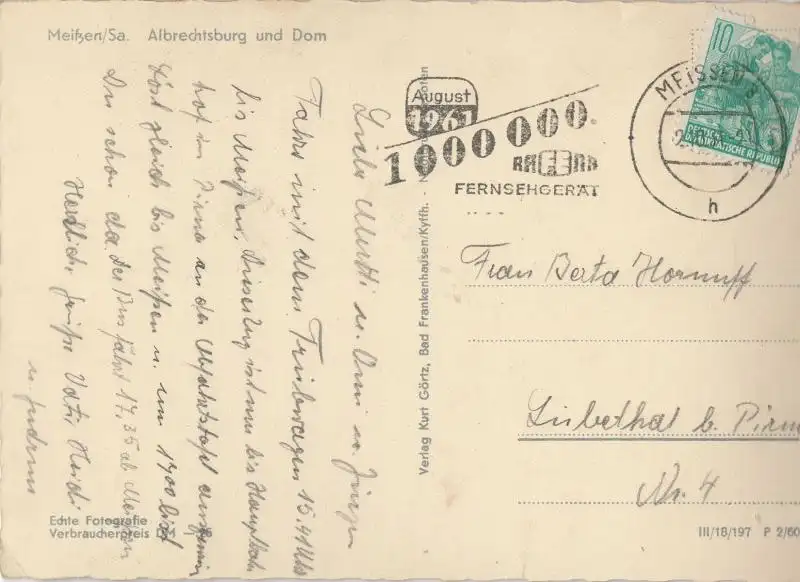 Meißen/Sa. Albrechtsburg und Dom
August
1961
1000 000.
RAFENA
FERNSEHGERÄT
MEISSEN 3
h
10
DEUTSCHE
DEMOKRATISCHE REPUBLIK
Liebe Mutti u. Omi u. Jürgen
Fahrt mit dem Triebwagen 15.41 Uhr
bis Meißen, Dieser ist nur bis Hauptbahn
hof in Pirna an der Abfahrtstafel
gleich bis Meißen u. um 1700
Du schon da. Der Bus fährt 17,35 ab Meißen
Herzlich, grüße Vati, Heidi
u. Gudrun
Verlag Kurt Görtz, Bad Frankenhausen/Kyffh.
Frau Berta Hornuff
Liebethal b. Pirna
Nr. 4
Echte Fotografie
Verbraucherpreis DM
III/18/197 P 2/60